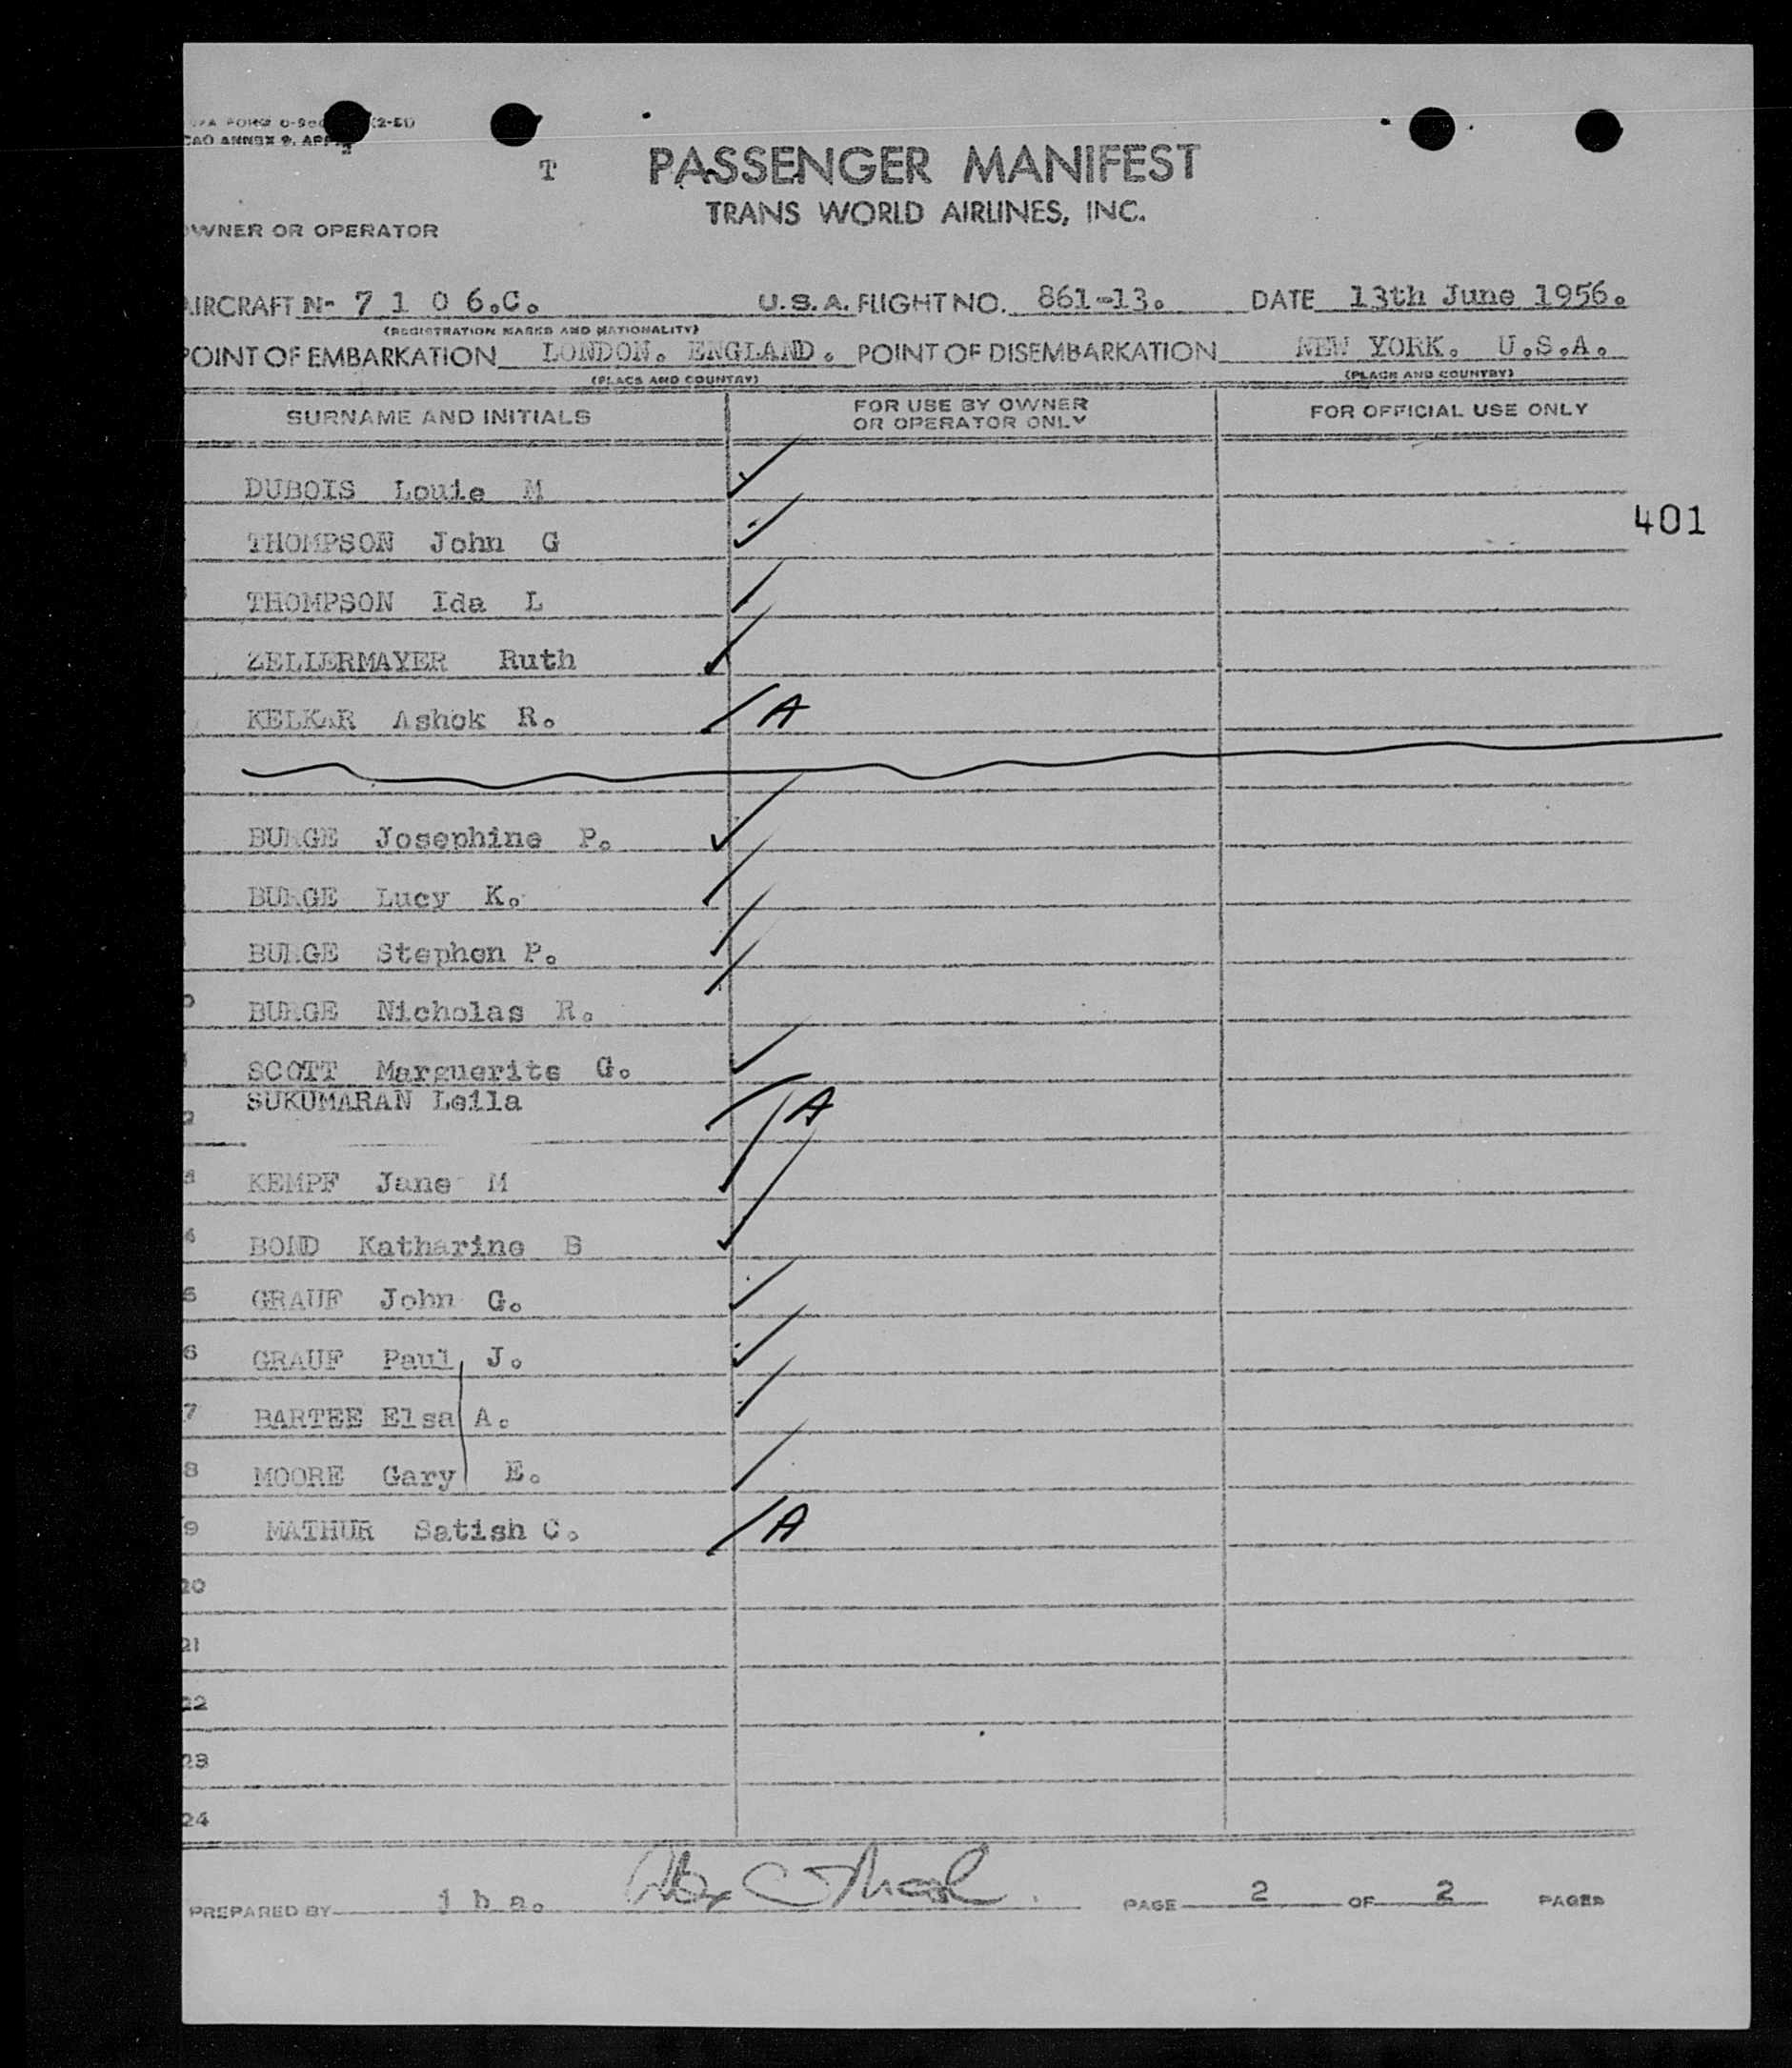 CAO ANNEX 9. APP.
T PASSENGER MANIFEST
TRANS WORLD AIRLINES, INC.
OWNER OR OPERATOR
AIRCRAFT N- 7 1 0 6.C. U.S.A. FLIGHT NO. 861-13. DATE 13th June 1956.
(REGISTRATION MARKS AND NATIONALITY)
POINT OF EMBARKATION LONDON. ENGLAND. POINT OF DISEMBARKATION NEW YORK. U.S.A.
(PLACE AND COUNTRY) (PLACE AND COUNTRY)
SURNAME AND INITIALS FOR USE BY OWNER OR OPERATOR ONLY FOR OFFICIAL USE ONLY
DUBOIS Louie M
401
THOMPSON John G
THOMPSON Ida L
ZELLERMAYER Ruth
KELKAR Ashok R. A
BURGE Josephine P.
BURGE Lucy K.
BURGE Stephen P.
BURGE Nicholas R.
SCOTT Marguerite G.
SUKUMARAN Leila A
KEMPF Jane M
4 BOND Katharine B
5 GRAUF John G.
6 GRAUF Paul J.
7 BARTEE Elsa A.
8 MOORE Gary E.
9 MATHUR Satish C. A
20
21
22
23
24
PREPARED BY j h a. PAGE 2 OF 2 PAGES